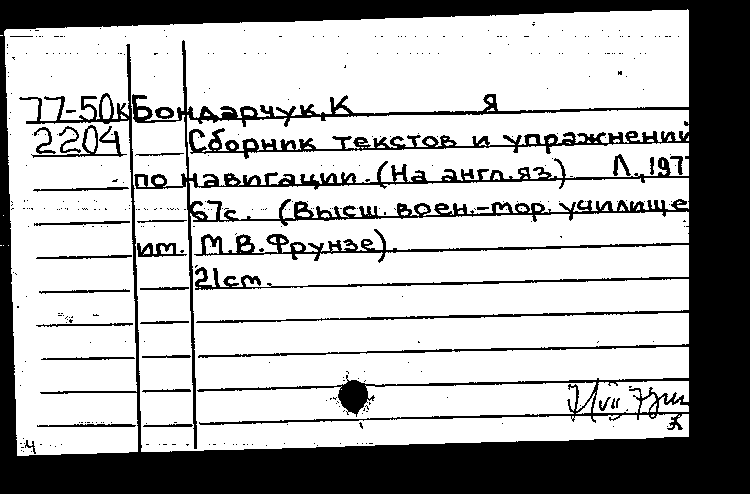 77-50к Бондарчук, К Я
2204 Сборник текстов и упражнений
по навигации. (На англ. яз.) Л., 197
67с. (Высш. воен.-мор. училище
им. М.В. Фрунзе).
21см.
Ч